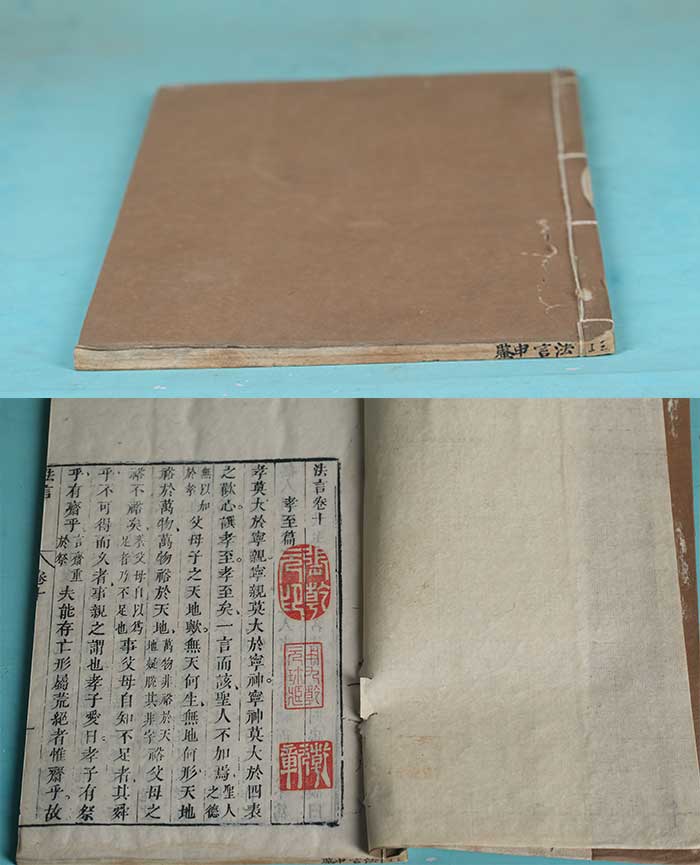 法言申鑒
法言卷十
孝至篇
孝莫大於寧親寧親莫大於寧神寧神莫大於四表
之歡心譔孝至孝至矣一言而該聖人不加焉聖人之德
無以加於孝父母子之天地歟無天何生無地何形天地
裕於萬物萬物裕於天地萬物非裕於天地疑脫其非字裕父母之
裕不裕矣父母自以爲足者乃不足也事父母自知不足者其舜
乎不可得而久者事親之謂也孝子愛日孝子有祭
乎有齋乎言齋重於祭夫能存亡形屬荒絕者惟齋乎故
法言